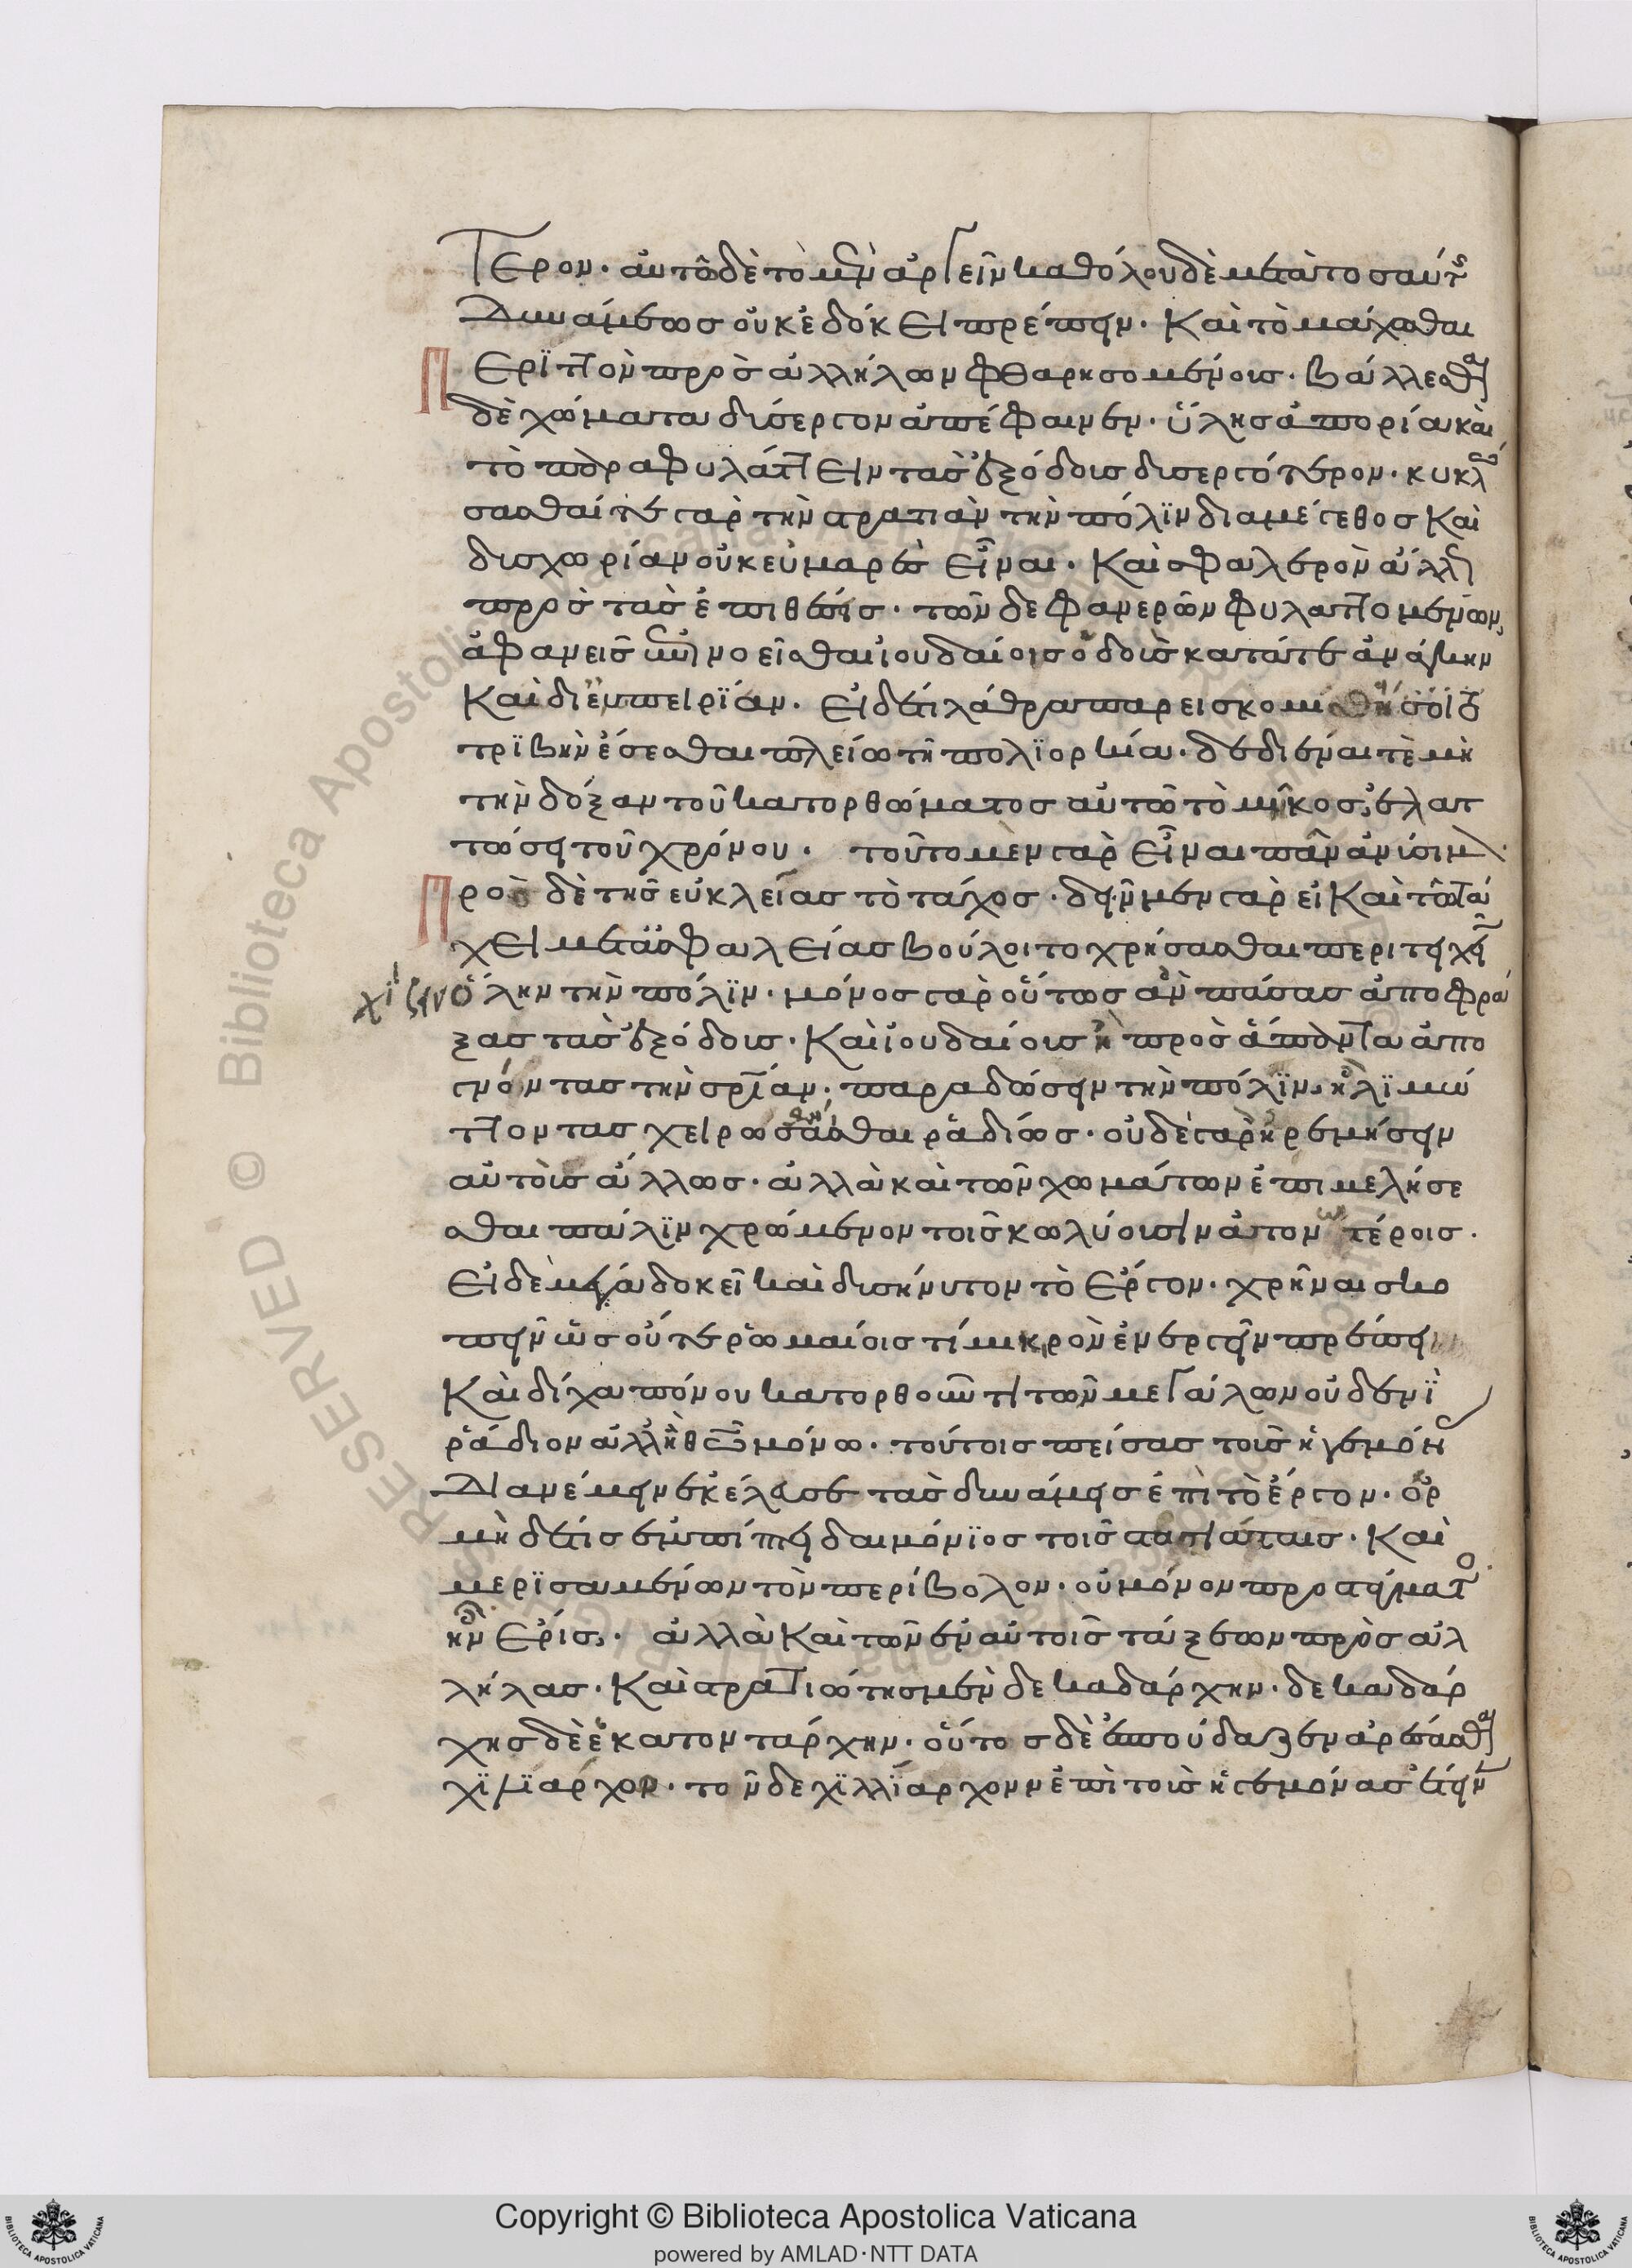 τερον. αὐτῶ δὲ τὸ μὲν ἀργεῖν καθόλου δὲ μετὰ τοσαύτης
δυνάμεως οὐκ ἐδόκει πρέπειν. καὶ τὸ μάχεσθαι
περϊττὸν πρὸς ἀλλήλων φθαρησομένοις. βάλλεσθαι
δὲ χώματα δύσεργον ἀπέφαινεν. ὕλης ἀπορία καὶ
τὸ παραφυλάττειν τὰς ἐξόδους δυσεργότερον. κυκλώ
σασθαί τε γὰρ τὴν στρατιὰν τὴν πόλϊν διὰ μέγεθος καὶ
δυσχωρίαν οὐκ εὐμαρὲς εἶναι. καὶ σφαλερὸν ἄλλως
πρὸς τὰς ἐπιθέσεις. τῶν δε φανερῶν φυλαττομένων,
ἀφανεῖς ἐπινοεῖσθαι ἰουδαίοις ὁδοὺς κατά τε ἀνάγκην
καὶ δι' ἐμπειρϊαν. εἰ δέ τι λάθρα παρεισκομισθήσοιτο
τρϊβὴν ἔσεσθαι πλείω τῆ πολϊορκία. δεδιέναι τὲ μὴ
τὴν δόξαν τοῦ κατορθώματος αὐτῶ τὸ μῆκος, ἐλατ
τώση τοῦ χρόνου. τοῦτο μὲν γὰρ εἶναι πᾶν ἀνύσιμον.
πρὸς δὲ τῆς εὐκλείας τὸ τάχος. δεῖν μεν γὰρ εἰ καὶ τῶ τά
χει μετὰ ἀσφαλείας βούλοιτο χρήσασθαι περιτειχί
χίζειν ὅλην τὴν πόλϊν. μόνος γὰρ οὕτως ἂν πάσας ἀποφρά
ξας τὰς ἐξόδους. καὶ ἰουδαίους ἢ πρὸς ἅπαντα ἀπο
γνόντας τὴν σωτηρίαν, παραδώσειν τὴν πόλϊν, ἢ λϊμώ
ττοντας χειρώσασθαι ῥαδίως. οὐδὲ γὰρ ἠρεμήσειν
αὐτὸς ἄλλως. ἀλλὰ καὶ τῶν χωμάτων ἐπιμελήσε
σθαι πάλϊν χρώμενον τοῖς κωλύουσιν ἀτονωτέροις.
εἰ δέ μέγα δοκεῖ καὶ δυσήνυτον τὸ ἔργον. χρῆναι σκο
πεῖν ὡς οὔτε ῥωμαίοις τί μικρὸν ἐνεργεῖν πρέπει
καὶ δίχα πόνου κατορθοῦν τι τῶν μεγάλων οὐδενϊ
ῥάδιον ἀλλ' ἢ θεῶ μόνω. τούτοις πείσας τοὺς ἡγεμόνας
διανέμειν ἐκέλευσε τὰς δυνάμεις ἐπὶ τὸ ἔργον. ὁρ
μὴ δέ τις ἐμπίπτει δαιμόνϊος τοῖς στρατιώταις. καὶ
μερϊσαμένων τὸν περίβολον. οὐ μόνον προ ταγμάτων
ἦν ἔρις. ἀλλὰ καὶ τῶν ἐν αὐτοῖς τάξεων πρὸς ἀλ
λήλας. καὶ στρατιώτης μὲν δεκαδάρχην. δεκαδάρ
χης δὲ ἑκατοντάρχην. οὗτος δὲ ἐσπούδαζεν ἀρέσασθαι
χϊλϊαρχον. τον δε χϊλλϊαρχον ἐπὶ τοὺς ἡγεμόνας ἔτεινεν